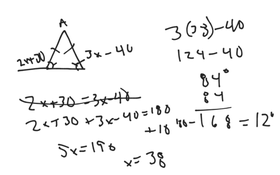 A
2x+30
3x-40
2x+30=3x-40
2x+30+3x-40=180
5x=190
x=38
3(38)-40
124-40
84°
84
180-168=12°